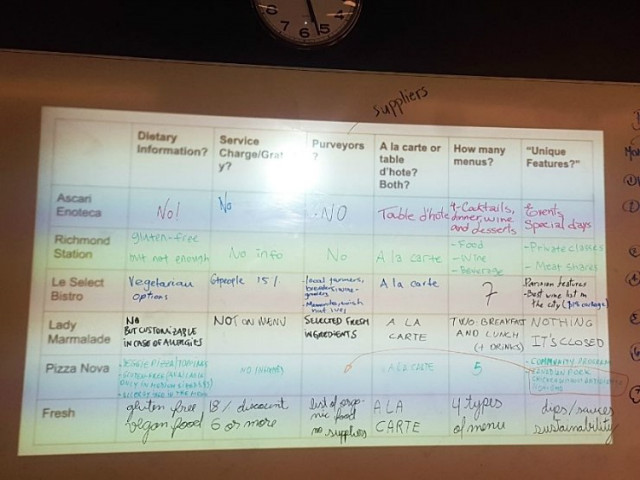 7 6 5
suppliers
Dietary
Information?
Service
Charge/Grat
y?
Purveyors
?
A la carte or
table
d'hote?
Both?
How many
menus?
"Unique
Features?"
Ascari
Enoteca
No!
No
NO
Table d'hote
4-Cocktails,
dinner, wine
and desserts
Events,
Special days
Richmond
Station
gluten-free
but not enough
No info
No
A la carte
- Food
- Wine
- Beverage
- Private classes
- Meat shares
Le Select
Bistro
Vegetarian
options
6+people 15%
-local farmers,
A la carte
7
Parisian features
-Best wine list in
the city
Lady
Marmalade
NO
BUT CUSTOMIZABLE
IN CASE OF ALLERGIES
NOT ON MENU
SELECTED FRESH
INGREDIENTS
A LA
CARTE
TWO: BREAKFAST
AND LUNCH
(+ DRINKS)
NOTHING
IT'S CLOSED
Pizza Nova
- VEGGIE PIZZA/TOPPINGS
A LA CARTE
5
- COMMUNITY PROGRAM
Fresh
gluten free
vegan food
18% discount
6 or more
list of orga-
nic food
no supplies
A LA
CARTE
4 types
of menu
dips/sauces
sustainability